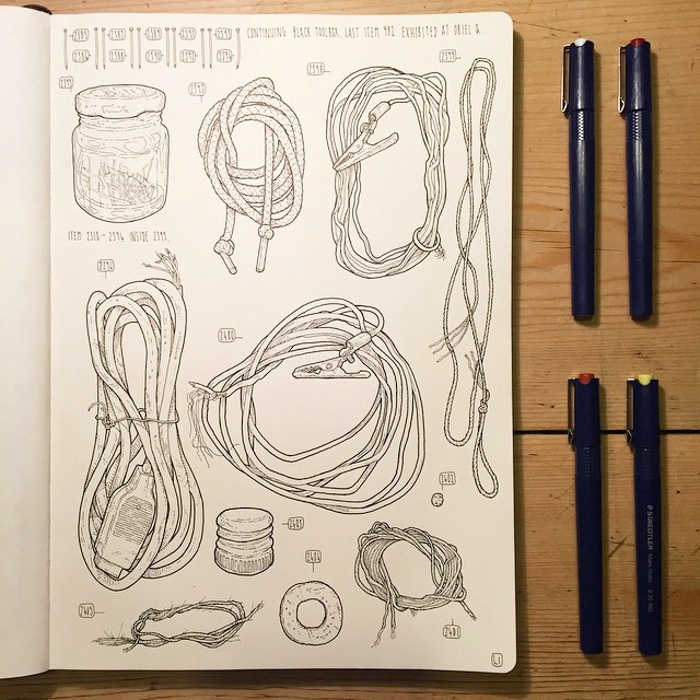 2385 2387 2389 2391 2393
CONTINUING BLACK TOOLBOX. LAST ITEM 982. EXHIBITED AT OBIEL Q.
2386 2388 2390 2392 2394
2395
2397
2398
2399
ITEM 2310 - 2394 INSIDE 2395.
2396
2400
2402
2403
2404
2405
2401
41
STAEDTLER